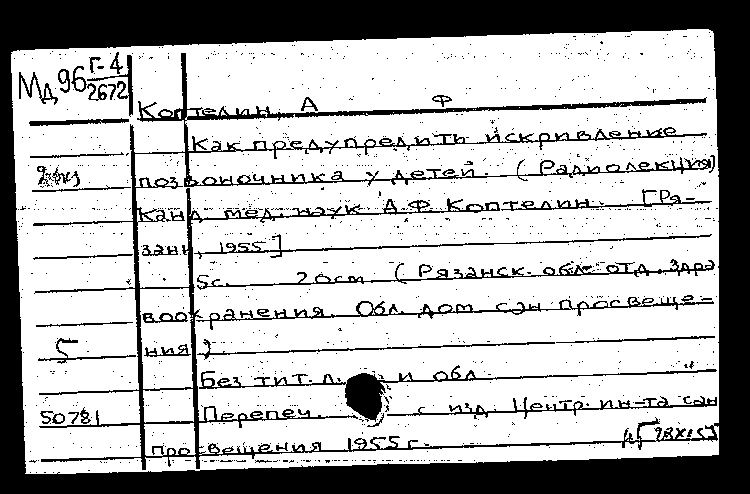 Мд96 Г-4
2672
Коптелин, А Ф
Как предупредить искривление
позвоночника у детей. (Радиолекция)
Канд. мед. наук А.Ф. Коптелин. [Ря-
зань, 1955]
5с. 20см (Рязанск. обл. отд. здра
воохранения. Обл. дом сан просвеще=
5 ния).
Без тит. л. и обл.
50781 Перепеч. с изд. Центр. ин-та сан
просвещения 1955г.